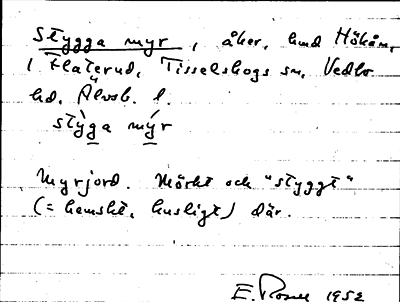 Stygga myr, åker, hmd Håkån,
1 Flaterud, Tisselskogs sn, Vedbo
hd, Älvsb. l.
stỳga mýr
Myrjord. Mörkt och "styggt"
(= hemskt, kusligt) där.
E. Rosell 1952